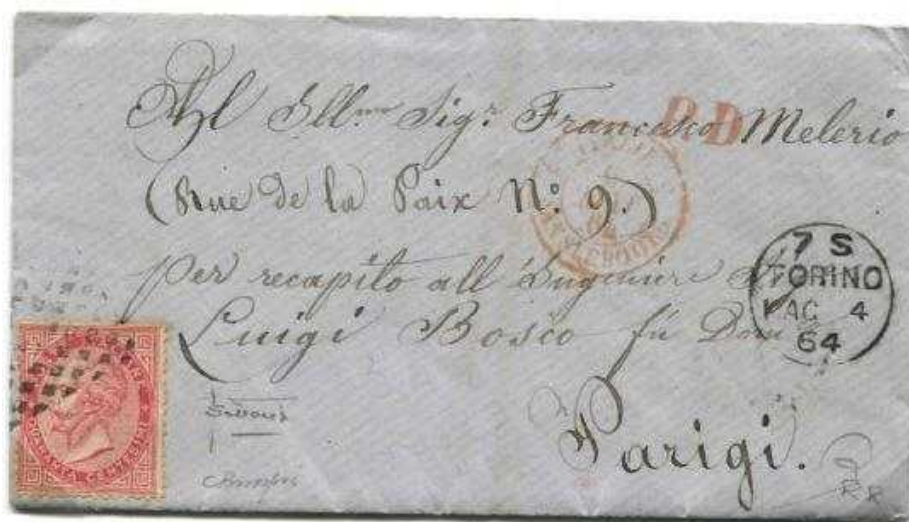 All Ill.mo Sigr. Francesco Melerio
P.D
(Rue de la Paix N: 9.)
per recapito all'Ingeniere
Luigi Bosco fu
Parigi.
7 S
TORINO
AG 4
64
QUARANTA CENTESIMI